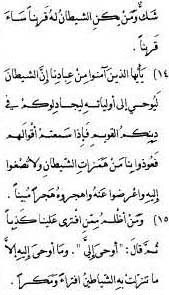 شكّ ومَنْ يكنِ الشيطانُ لهُ قريناً ساءَ
قريناً .
(١٤) يأيها الذينَ آمنوا مِنْ عبادِنا إنَّ الشيطانَ
ليوحي إلى أوليائهِ ليجادلوكمْ في
دينِكمُ القويمِ فإذا سمعتمْ أقوالَهم
فعوذوا بنا مِنْ همزاتِ الشيطانِ ولا تصغوا
إليهِ واعرضوا عنهُ واهجروهُ هجراً مبيناً .
(١٥) ومَنْ أظلمُ مِمَّنْ افترى علينا كذباً
ثمَّ قالَ : "أُوحيَ إليَّ" . وما أُوحيَ إليهِ إلاَّ
ما تنزلتْ بهِ الشياطينُ افتراءً ومكراً .